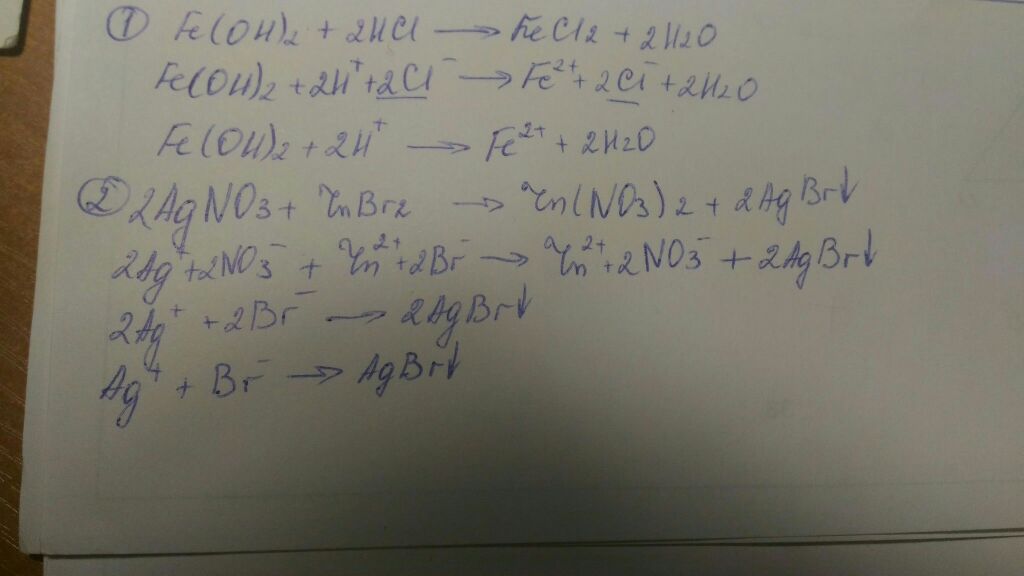 ① Fe(OH)₂ + 2HCl ⟶ FeCl₂ + 2H₂O
Fe(OH)₂ + 2H⁺ + 2Cl⁻ ⟶ Fe²⁺ + 2Cl⁻ + 2H₂O
Fe(OH)₂ + 2H⁺ ⟶ Fe²⁺ + 2H₂O
② 2AgNO₃ + ZnBr₂ ⟶ Zn(NO₃)₂ + 2AgBr↓
2Ag⁺ + 2NO₃⁻ + Zn²⁺ + 2Br⁻ ⟶ Zn²⁺ + 2NO₃⁻ + 2AgBr↓
2Ag⁺ + 2Br⁻ ⟶ 2AgBr↓
Ag⁺ + Br⁻ ⟶ AgBr↓